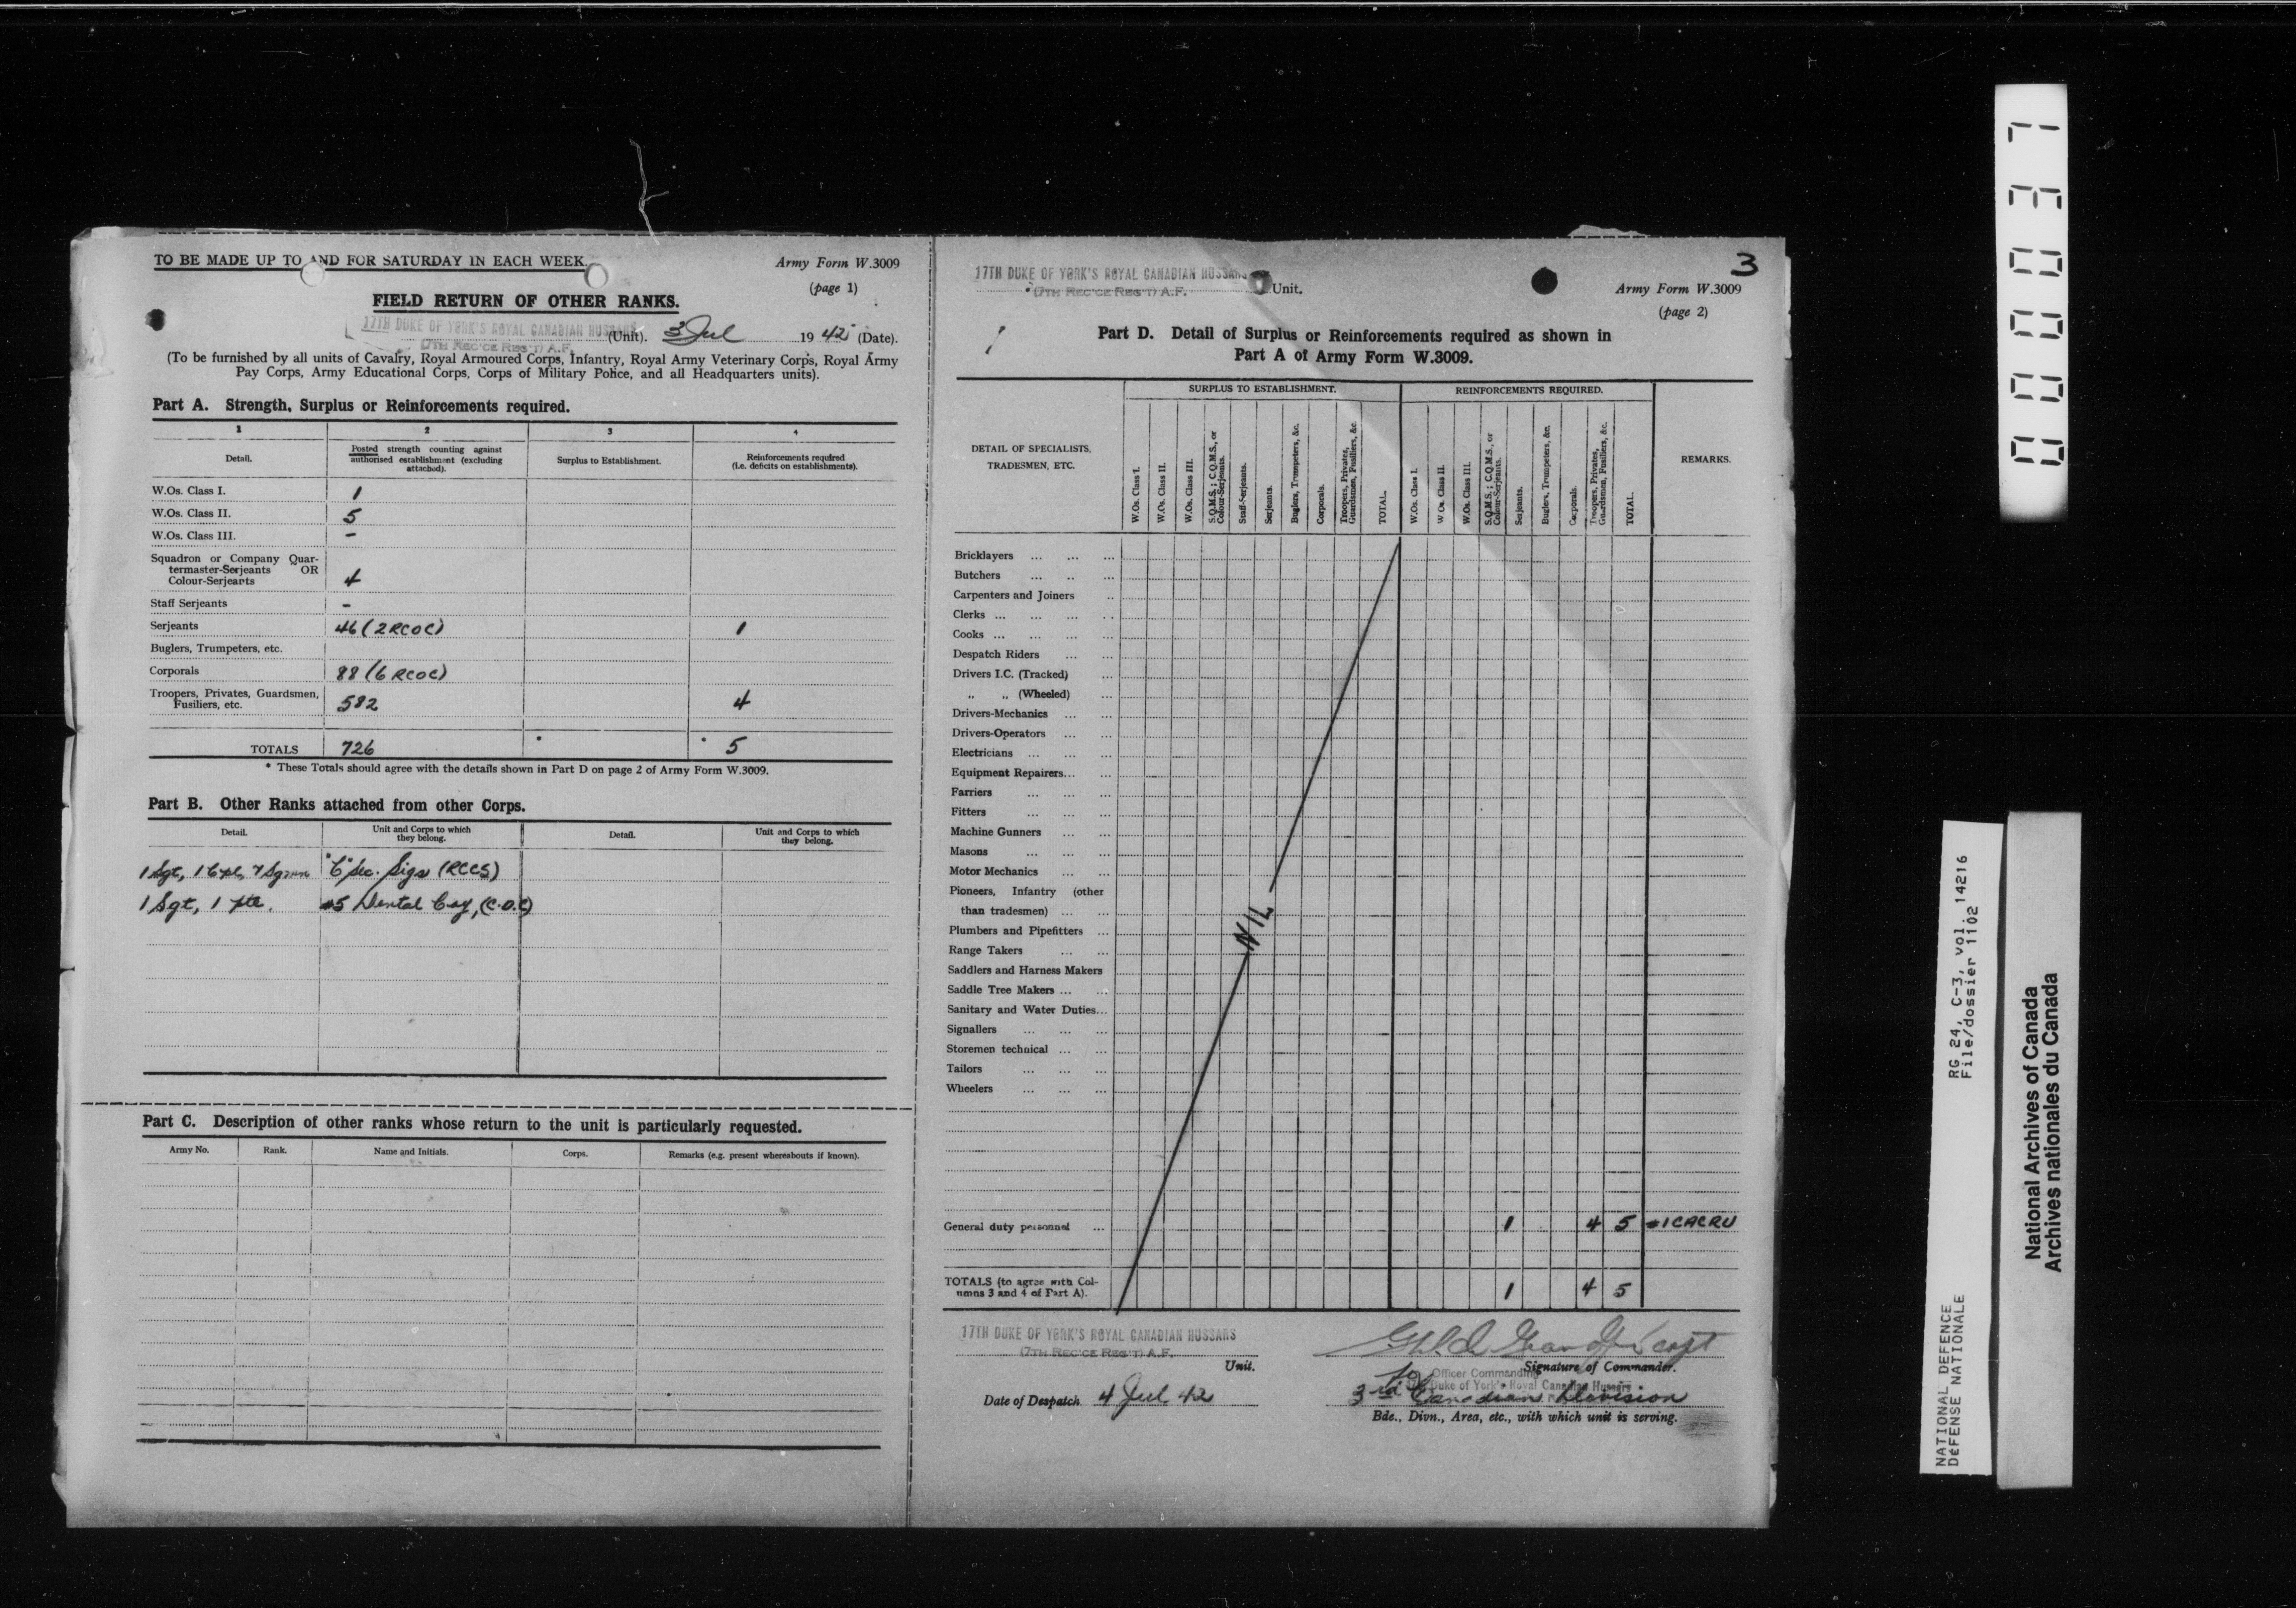 TO BE MADE UP TO AND FOR SATURDAY IN EACH WEEK.
Army Form W.3009
(page 1)
FIELD RETURN OF OTHER RANKS.
17TH DUKE OF YORK'S ROYAL CANADIAN HUSSARS
(7TH REC'CE REG'T) A.F.
(Unit). 3 Jul 1942 (Date).
(To be furnished by all units of Cavalry, Royal Armoured Corps, Infantry, Royal Army Veterinary Corps, Royal Army
Pay Corps, Army Educational Corps, Corps of Military Police, and all Headquarters units).
Part A. Strength, Surplus or Reinforcements required.
1 2 3 4
Detail.
Posted strength counting against
authorised establishment (excluding
attached).
Surplus to Establishment.
Reinforcements required
(i.e. deficits on establishments).
W.Os. Class I. 1
W.Os. Class II. 5
W.Os. Class III. –
Squadron or Company Quar-
termaster-Serjeants OR
Colour-Serjeants 4
Staff Serjeants –
Serjeants 46 (2 RCOC) 1
Buglers, Trumpeters, etc.
Corporals 88 (6 RCOC)
Troopers, Privates, Guardsmen,
Fusiliers, etc. 582 4
TOTALS 726 * * 5
* These Totals should agree with the details shown in Part D on page 2 of Army Form W.3009.
Part B. Other Ranks attached from other Corps.
Detail.
Unit and Corps to which
they belong.
Detail.
Unit and Corps to which
they belong.
1 Sgt, 1 Cpl, 7 Sgmn "C" Sec. Sigs (RCCS)
1 Sgt, 1 Pte. #5 Dental Coy, (C.D.C)
Part C. Description of other ranks whose return to the unit is particularly requested.
Army No. Rank. Name and Initials. Corps. Remarks (e.g. present whereabouts if known).
3
17TH DUKE OF YORK'S ROYAL CANADIAN HUSSARS
(7TH REC'CE REG'T) A.F.
Unit.
Army Form W.3009
(page 2)
Part D. Detail of Surplus or Reinforcements required as shown in
Part A of Army Form W.3009.
DETAIL OF SPECIALISTS,
TRADESMEN, ETC.
SURPLUS TO ESTABLISHMENT.
W.Os. Class I.
W.Os. Class II.
W.Os. Class III.
S.Q.M.S.; C.Q.M.S., or
Colour-Serjeants.
Staff-Serjeants.
Serjeants.
Buglers, Trumpeters, &c.
Corporals.
Troopers, Privates,
Guardsmen, Fusiliers, &c.
TOTAL.
REINFORCEMENTS REQUIRED.
W.Os. Class I.
W.Os. Class II.
W.Os. Class III.
S.Q.M.S.; C.Q.M.S., or
Colour-Serjeants.
Serjeants.
Buglers, Trumpeters, &c.
Corporals.
Troopers, Privates,
Guardsmen, Fusiliers, &c.
TOTAL.
REMARKS.
Bricklayers
Butchers
Carpenters and Joiners
Clerks
Cooks
Despatch Riders
Drivers I.C. (Tracked)
„ „ (Wheeled)
Drivers-Mechanics
Drivers-Operators
Electricians
Equipment Repairers
Farriers
Fitters
Machine Gunners
Masons
Motor Mechanics
Pioneers, Infantry (other
than tradesmen)
NIL
Plumbers and Pipefitters
Range Takers
Saddlers and Harness Makers
Saddle Tree Makers
Sanitary and Water Duties
Signallers
Storemen technical
Tailors
Wheelers
General duty personnel 1 4 5 #1 CACRU
TOTALS (to agree with Col-
umns 3 and 4 of Part A). 1 4 5
17TH DUKE OF YORK'S ROYAL CANADIAN HUSSARS
(7TH REC'CE REG'T) A.F.
Unit.
Capt
Signature of Commander.
Officer Commanding
Duke of York's Royal Canadian Hussars
Date of Despatch 4 Jul 42
3rd Canadian Division
Bde., Divn., Area, etc., with which unit is serving.
000037
NATIONAL DEFENCE
DÉFENSE NATIONALE
RG 24, C-3, vol. 14216
File/dossier 1102
National Archives of Canada
Archives nationales du Canada